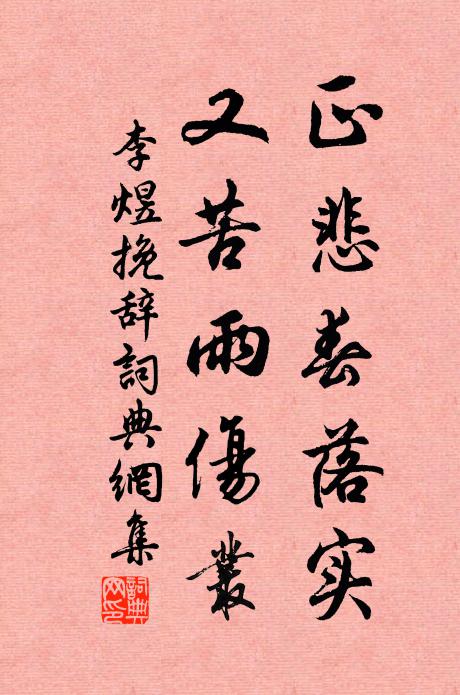 正悲春落实
又苦雨傷叢
李煜挽辞詞典網集
詞典网印